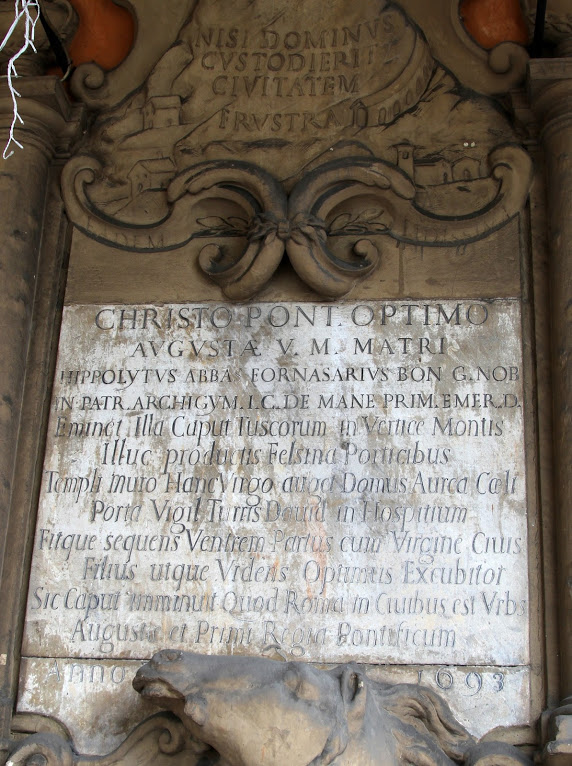 NISI DOMINVS
CVSTODIERIT
CIVITATEM
FRVSTRA
CHRISTO PONT. OPTIMO
AVGVSTÆ V. M. MATRI
HIPPOLYTVS ABBAS FORNASARIVS BON G. NOB
IN PATR. ARCHIGYM. I.C. DE MANE PRIM. EMER. D.
Eminet Illa Caput Tuscorum in Vertice Montis
Illuc productis Felsina Porticibus
Templi muro Hanc Virgo auget Domus Aurea Cœli
Porta Vigil Turris Dauid in Hospitium
Fitque sequens Ventrem Partus cum Virgine Ciuis
Filius utque Vrdens Optimus Excubitor
Sic Caput imminuit Quod Roma in Ciuibus est Vrbs
Augustæ et Primi Regia Pontificum
Anno 1693